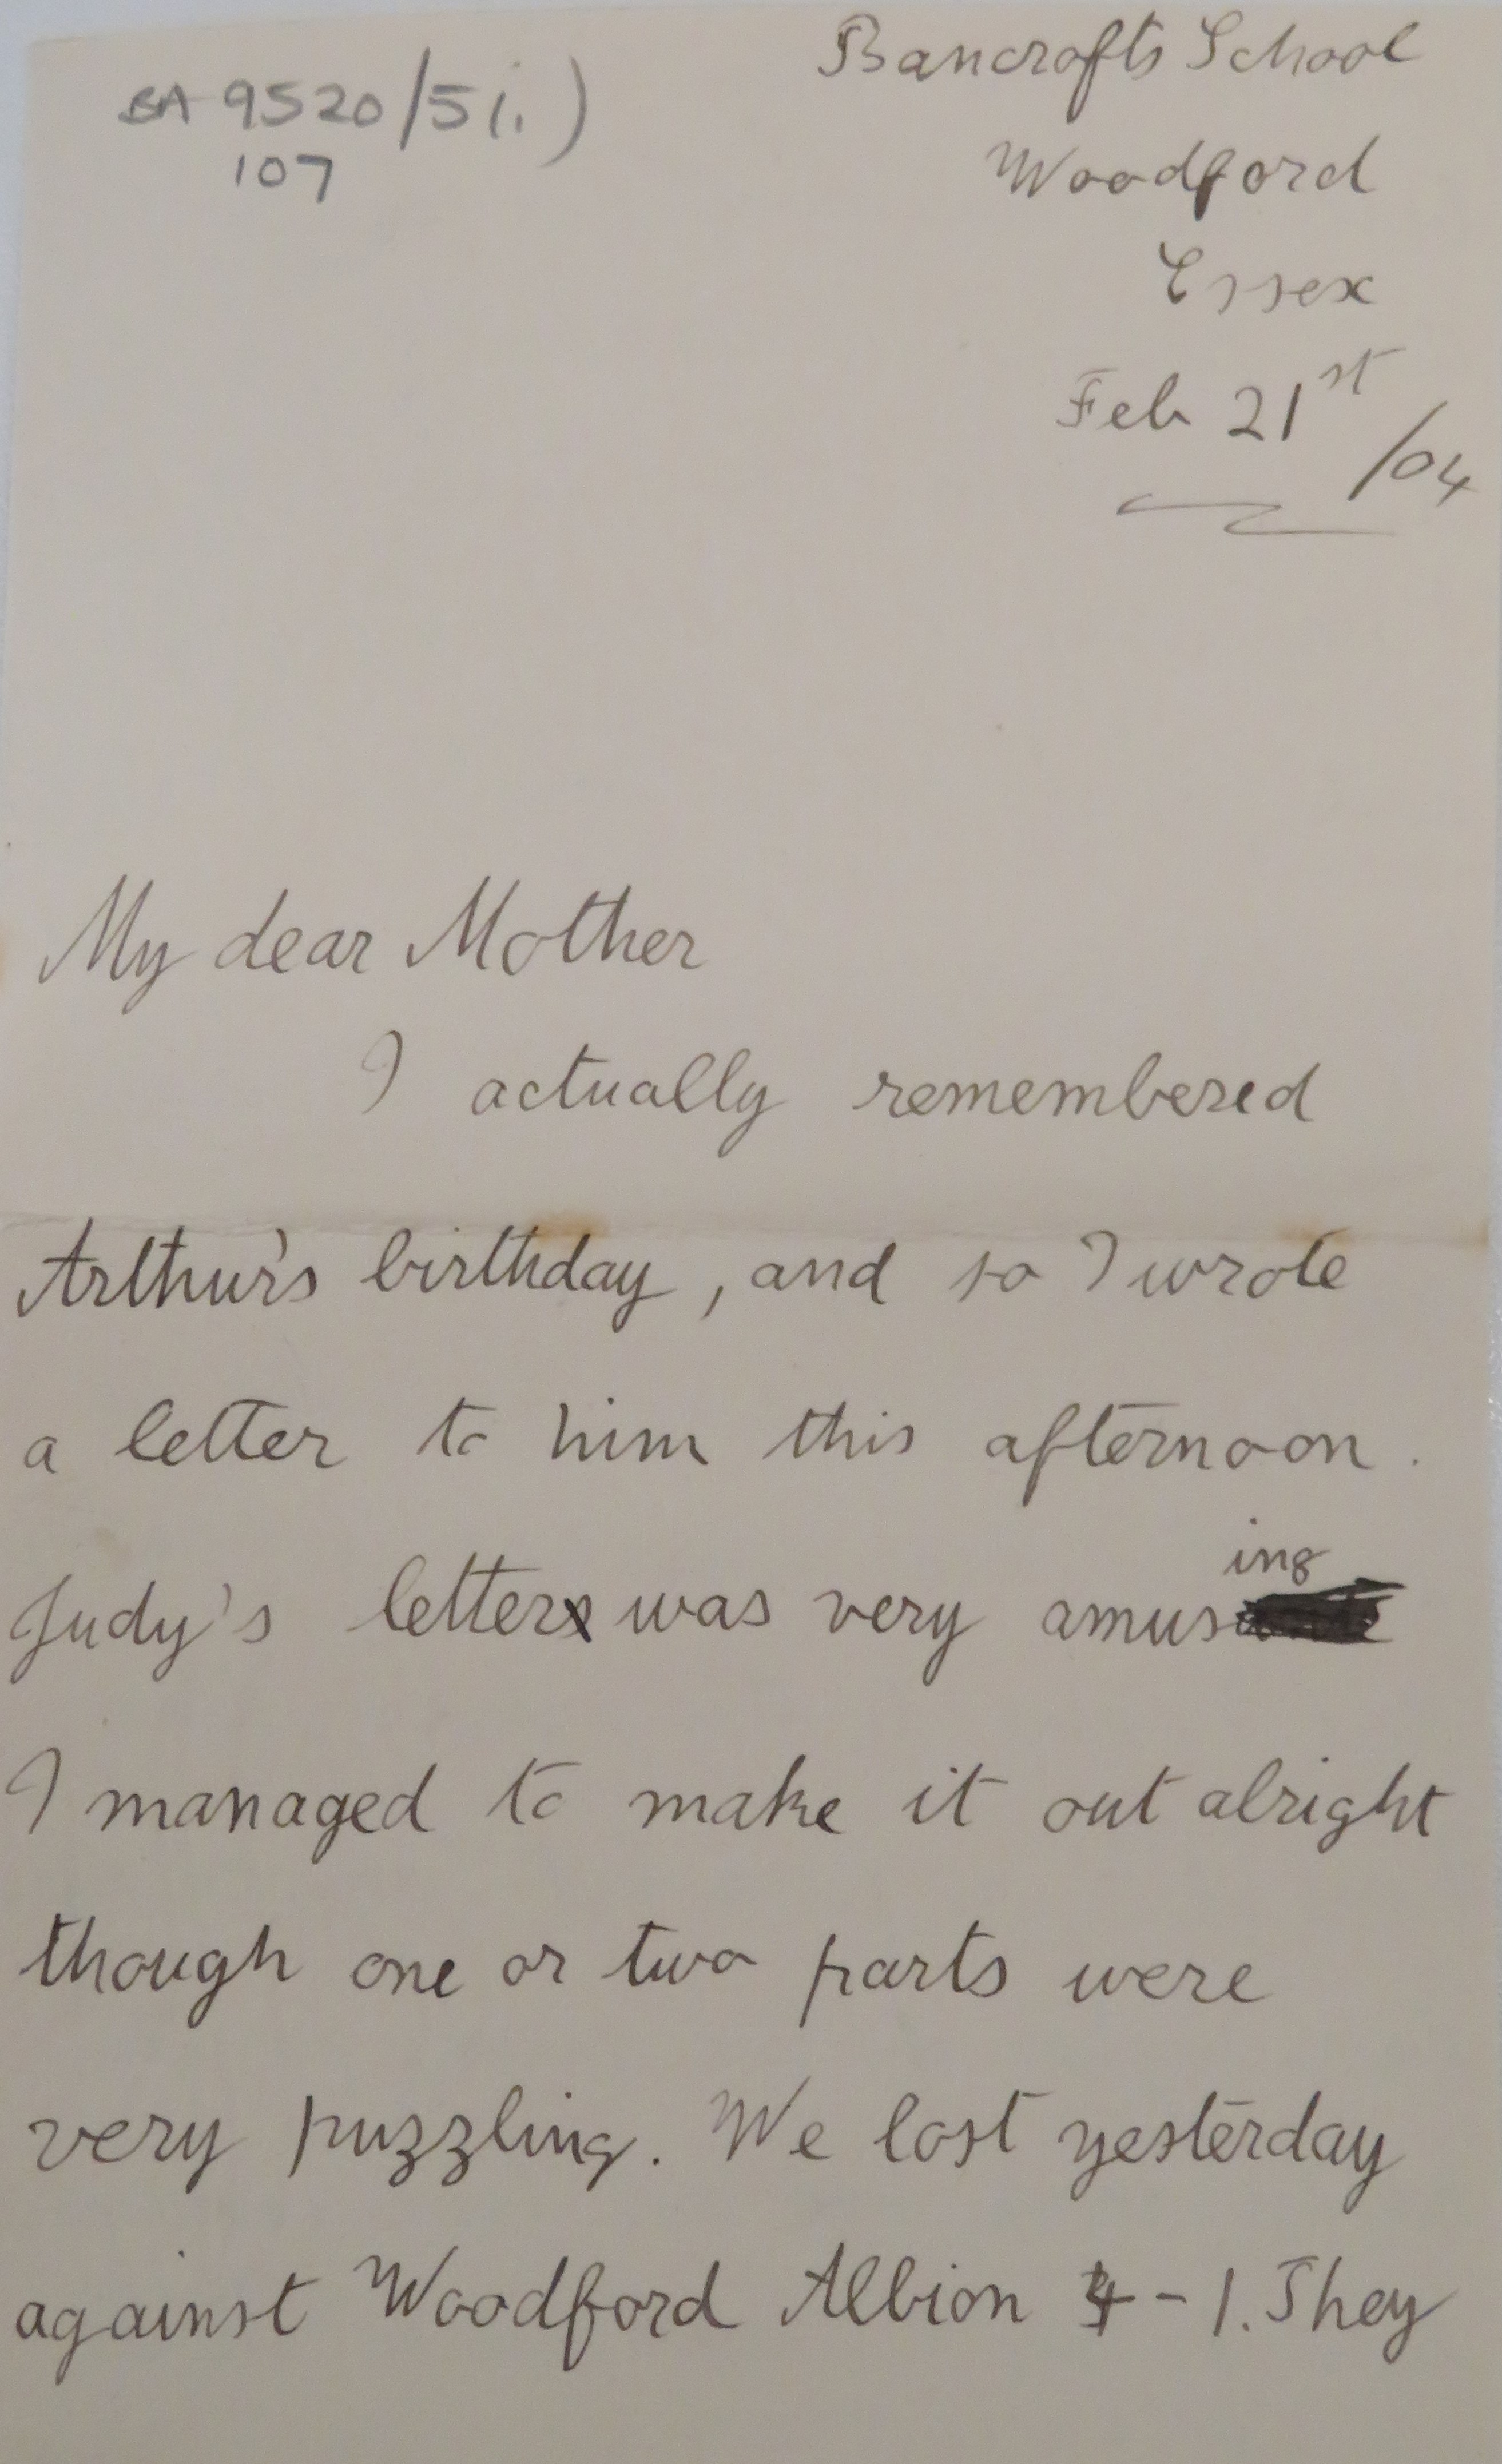 BA 9520/5(i.)
107
Bancrofts School
Woodford
Essex
Feb 21st /04
My dear Mother
I actually remembered
Arthur's birthday, and so I wrote
a letter to him this afternoon.
Judy's letter was very amusing
I managed to make it out alright
though one or two parts were
very puzzling. We lost yesterday
against Woodford Albion 4-1. They